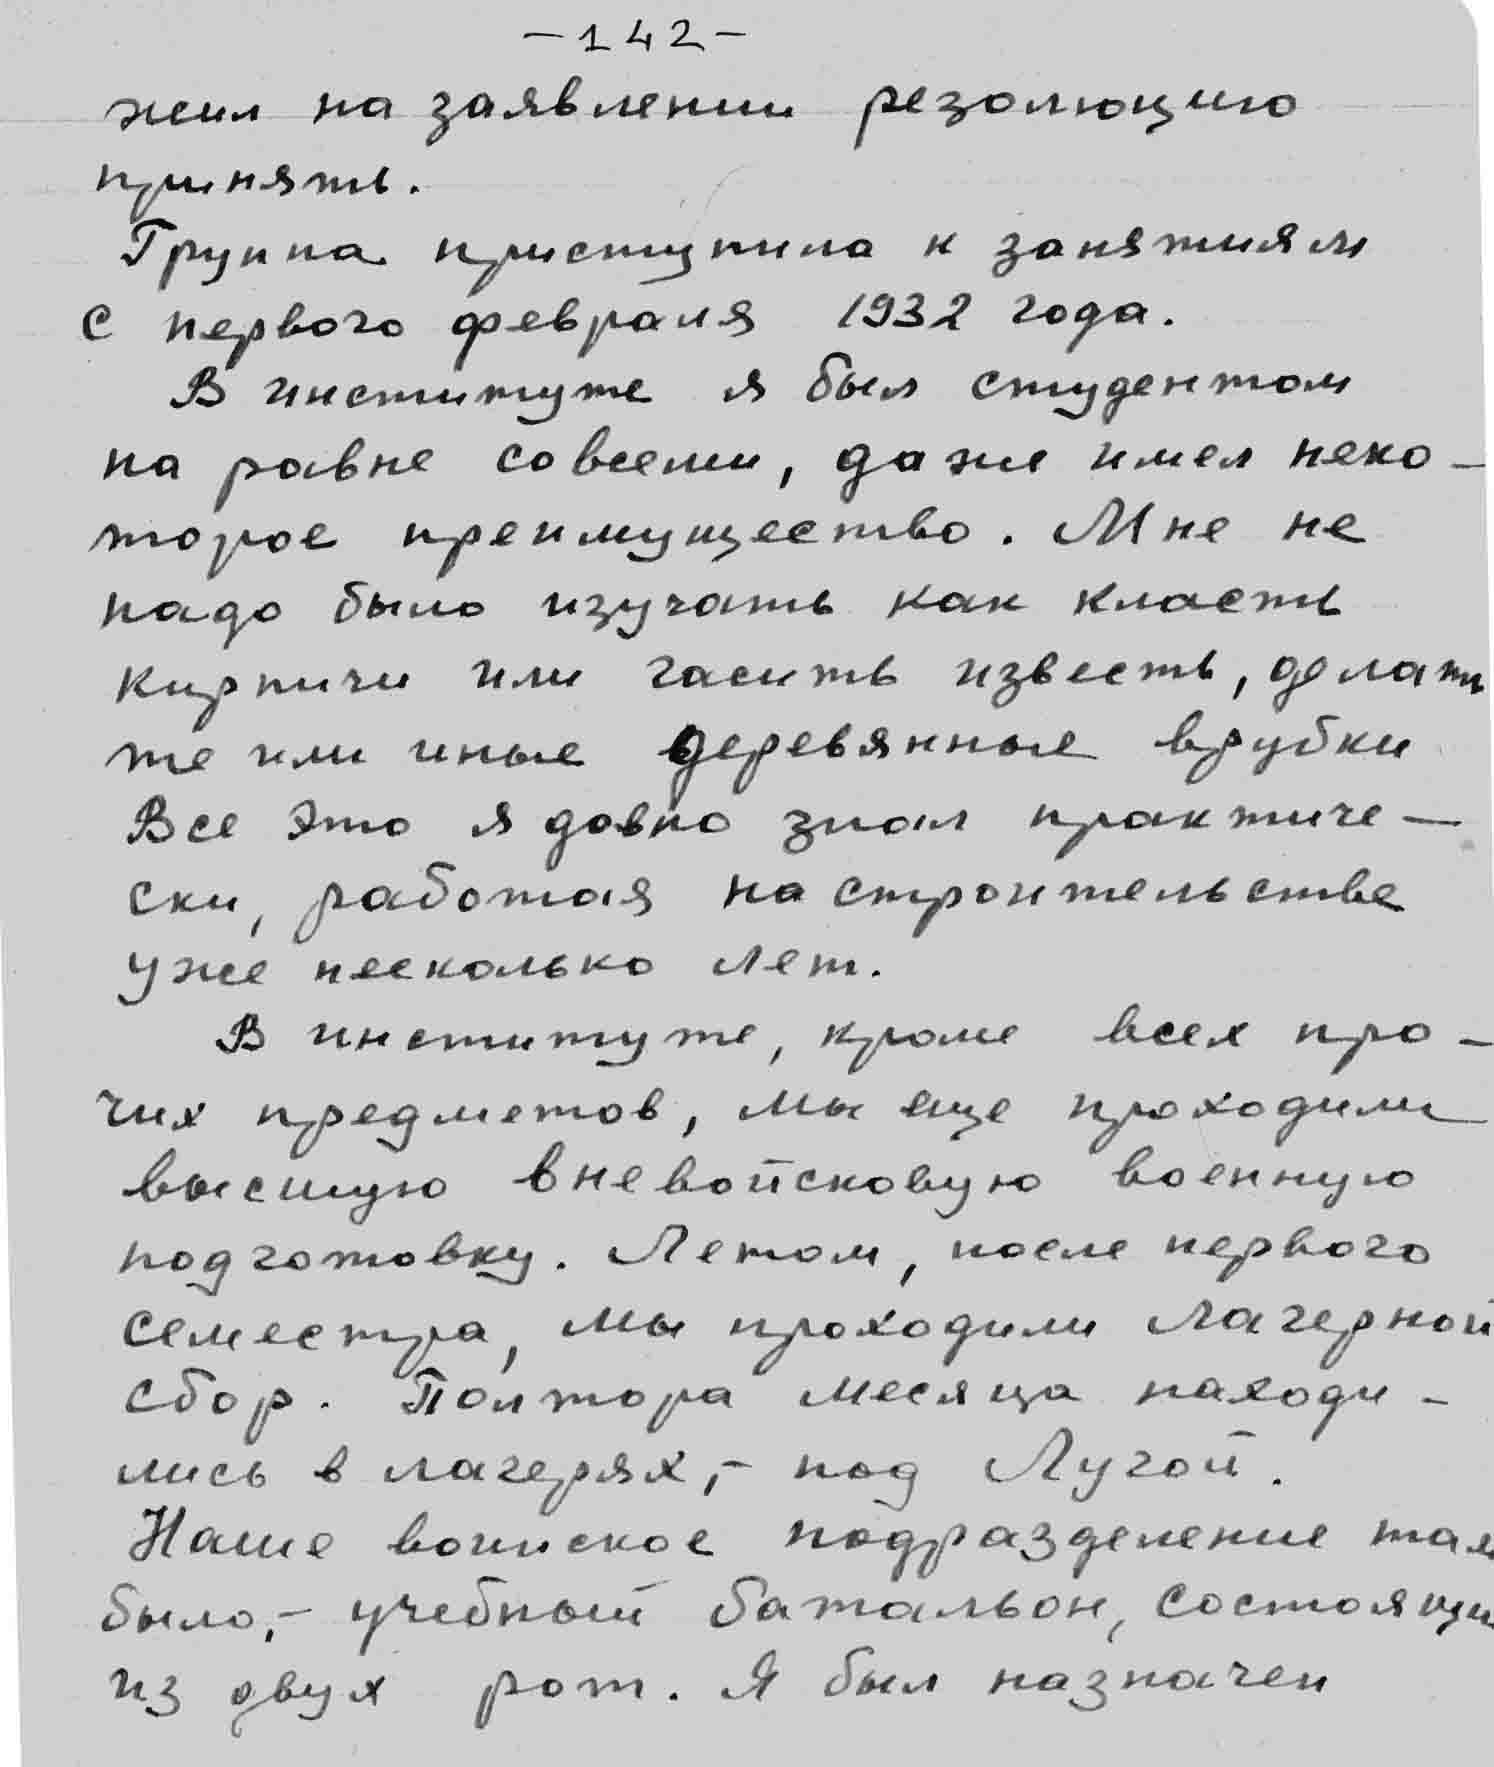 -142-
жил на заявлении резолюцию
принять.
Группа приступила к занятиям
с первого февраля 1932 года.
В институте я был студентом
на равне совсеми, даже имел неко-
торое преимущество. Мне не
надо было изучать как класть
кирпичи или гасить известь, делать
те или иные деревянные врубки
Все это я давно знал практиче-
ски, работая на строительстве
уже несколько лет.
В институте, кроме всех про-
чих предметов, мы еще проходили
высшую вневойсковую военную
подготовку. Летом, после первого
семестра, мы проходили лагерной
сбор. Полтора месяца находи-
лись в лагерях,- под Лугой.
Наше воинское подразделение там
было,- учебный батальон, состоящи
из двух рот. Я был назначен